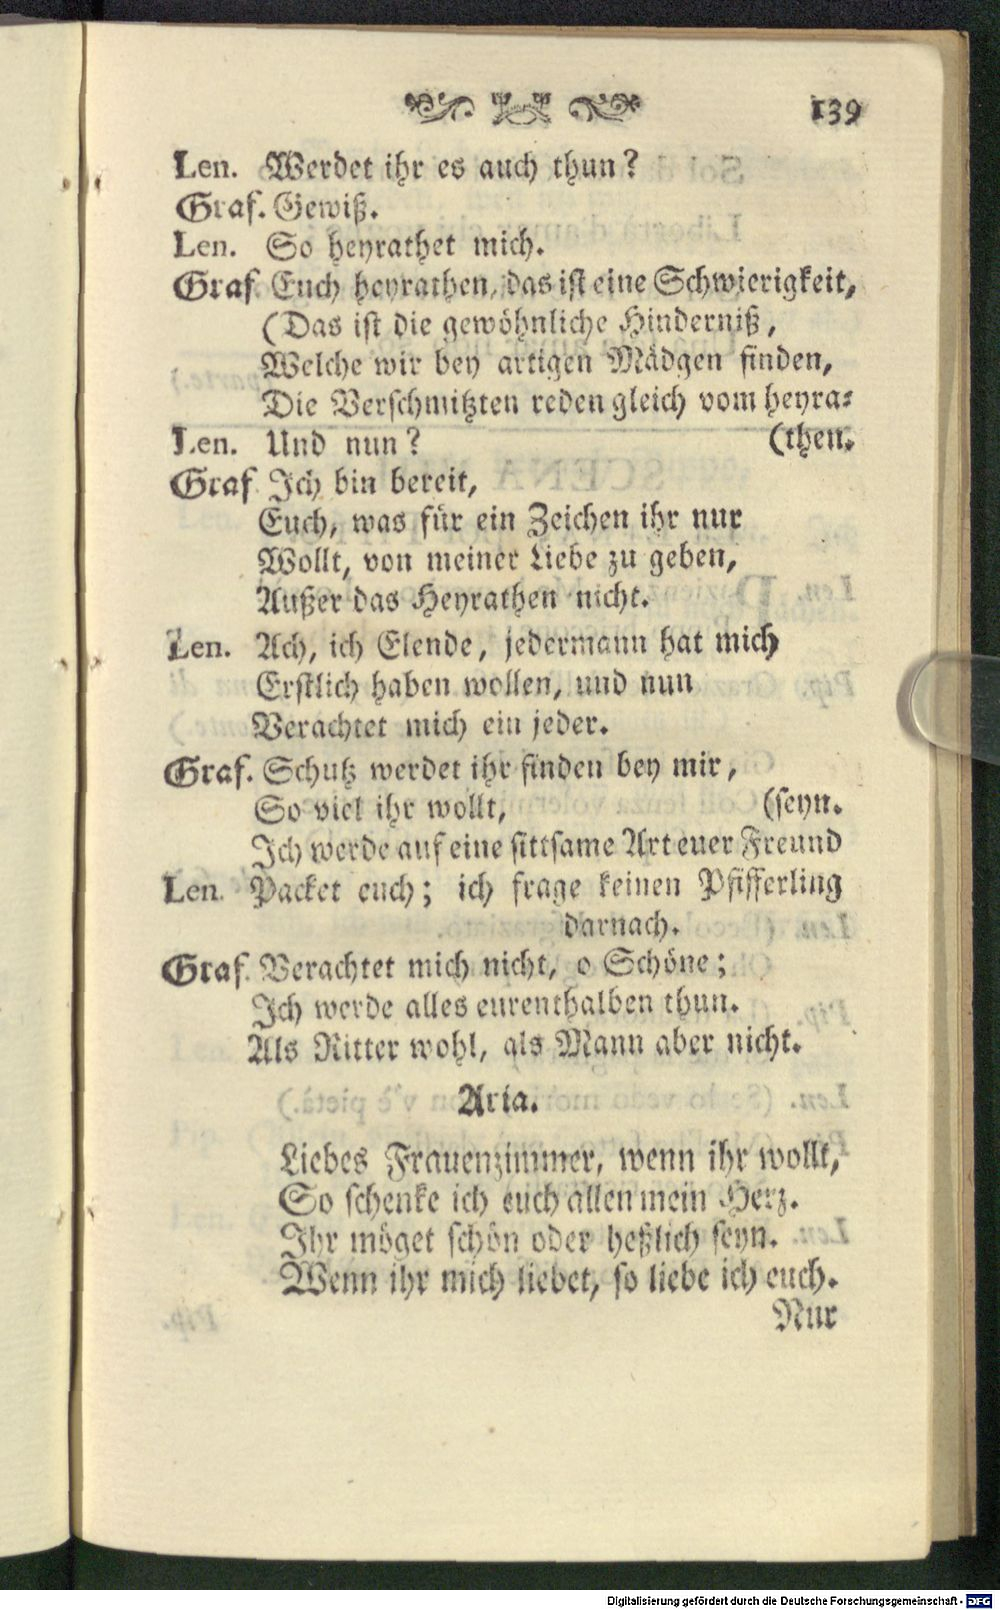 139
Len. Werdet ihr es auch thun?
Graf. Gewiß.
Len. So heyrathet mich.
Graf. Euch heyrathen, das ist eine Schwierigkeit,
(Das ist die gewöhnliche Hinderniß,
Welche wir bey artigen Mädgen finden,
Die Verschmitzten reden gleich vom heyra-
Len. Und nun? (then.
Graf. Ich bin bereit,
Euch, was für ein Zeichen ihr nur
Wollt, von meiner Liebe zu geben,
Außer das Heyrathen nicht.
Len. Ach, ich Elende, jedermann hat mich
Erstlich haben wollen, und nun
Verachtet mich ein jeder.
Graf. Schutz werdet ihr finden bey mir,
So viel ihr wollt, (seyn.
Ich werde auf eine sittsame Art euer Freund
Len. Packet euch; ich frage keinen Pfifferling
darnach.
Graf. Verachtet mich nicht, o Schöne;
Ich werde alles eurenthalben thun.
Als Ritter wohl, als Mann aber nicht.
Aria.
Liebes Frauenzimmer, wenn ihr wollt,
So schenke ich euch allen mein Herz.
Ihr möget schön oder heßlich seyn.
Wenn ihr mich liebet, so liebe ich euch.
Nur
Digitalisierung gefördert durch die Deutsche Forschungsgemeinschaft - DFG